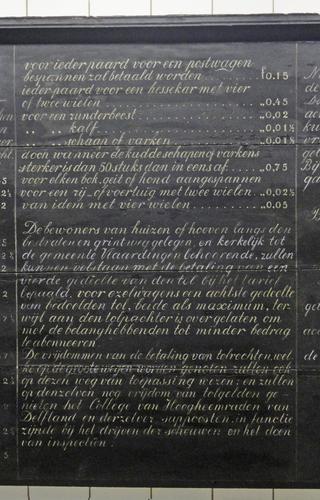 voor ieder paard voor een postwagen
bespannen zal betaald worden ........ f0.15
ieder paard voor een hessekar met vier
of twee wielen ........ „0.45
voor een runderbeest ........ „0.02
„ „ kalf ........ „0.01½
„ „ schaap of varken ........ „0.01½
doch wanneer de kudde schapen of varkens
sterker is dan 50 stuks dan in eens af ... „0.75
voor elken bok, geit of hond aangespannen
voor een rij- of voertuig met twee wielen .. „0.02½
van idem met vier wielen ........ „0.05
De bewoners van huizen of hoeven langs den
straten en grintweg gelegen, en kerkelijk tot
de gemeente Vlaardingen behoorende, zullen
kunnen volstaan met de betaling van een
vierde gedeelte van den tol bij het tarief
bepaald, voor ezelwagens een achtste gedeelte
van bedoelden tol, beide als maximum, ter-
wijl aan den tolpachter is overgelaten om
met de belanghebbenden tot minder bedrag
te abonneeren.
De vrijdommen van de betaling van tolrechten, wel-
ke op de groote wegen worden genoten zullen ook
op dezen weg van toepassing wezen; en zullen
op denzelven nog vrijdom van tolgelden ge-
nieten het College van Hoogheemraden van
Delfland en derzelver suppoosten, in functie
zijnde bij het drijven der schouwen en het doen
van inspectien.